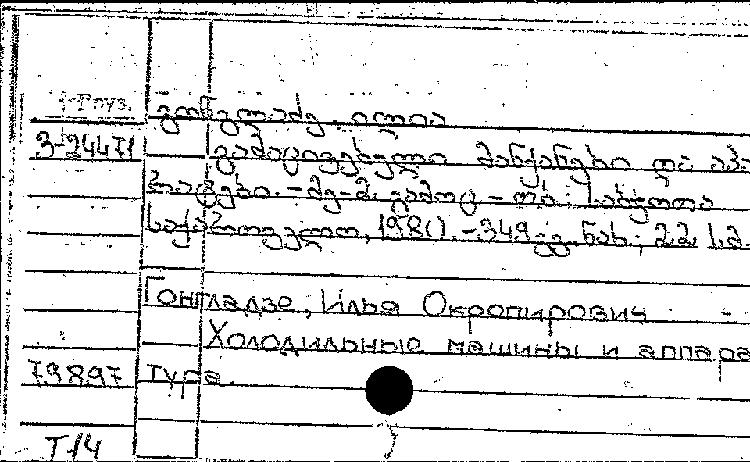 Груз.
ღონღლაძე, ილია
3-24471
გამაცივებელი მანქანები და აპა
რატები. - მე-2. გამოც. - თბ.: საბჭოთა
საქართველო, 1980. - 349 გვ. ნახ.; 22 სმ.
Гонгладзе, Илья Окропирович
Холодильные машины и аппара
79897 тура.
Т/4